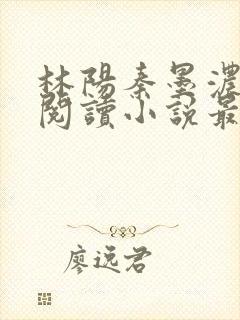 林陽秦墨濃
閱讀小說最
廖逸君